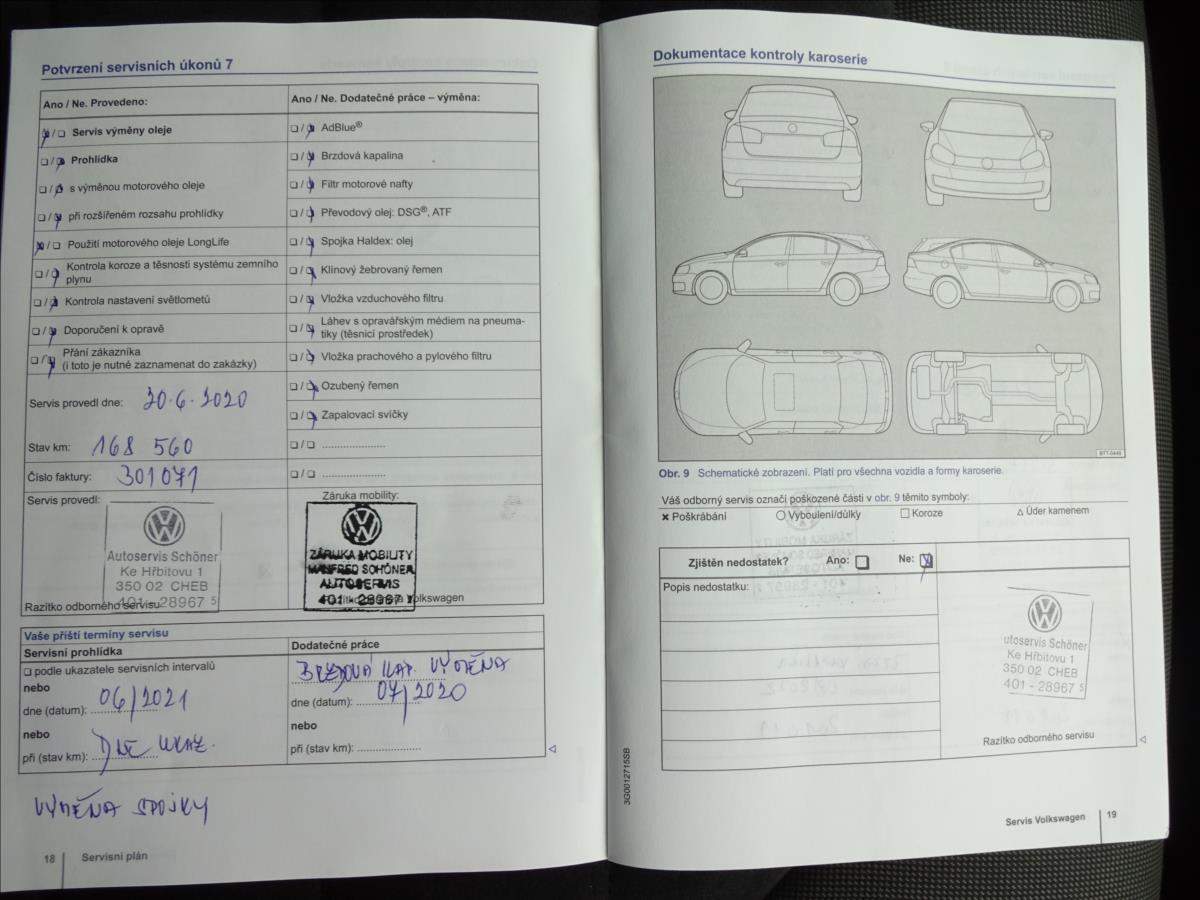 Potvrzení servisních úkonů 7
Ano / Ne. Provedeno:
❏ / ❏ Servis výměny oleje
❏ / ❏ Prohlídka
❏ / ❏ s výměnou motorového oleje
❏ / ❏ při rozšířeném rozsahu prohlídky
❏ / ❏ Použití motorového oleje LongLife
❏ / ❏ Kontrola koroze a těsnosti systému zemního
plynu
❏ / ❏ Kontrola nastavení světlometů
❏ / ❏ Doporučení k opravě
❏ / ❏ Přání zákazníka
(i toto je nutné zaznamenat do zakázky)
Servis provedl dne: 30.6.2020
Stav km: 168 560
Číslo faktury: 301071
Servis provedl:
Autoservis Schöner
Ke Hřbitovu 1
350 02 CHEB
401 - 28967 5
Razítko odborného servisu
Ano / Ne. Dodatečné práce – výměna:
❏ / ❏ AdBlue®
❏ / ❏ Brzdová kapalina
❏ / ❏ Filtr motorové nafty
❏ / ❏ Převodový olej: DSG®, ATF
❏ / ❏ Spojka Haldex: olej
❏ / ❏ Klínový žebrovaný řemen
❏ / ❏ Vložka vzduchového filtru
❏ / ❏ Láhev s opravářským médiem na pneuma-
tiky (těsnicí prostředek)
❏ / ❏ Vložka prachového a pylového filtru
❏ / ❏ Ozubený řemen
❏ / ❏ Zapalovací svíčky
❏ / ❏ ....................
❏ / ❏ ....................
Záruka mobility:
ZÁRUKA MOBILITY
MANFRED SCHÖNER
AUTOSERVIS
401 - 28967
Volkswagen
Vaše příští termíny servisu
Servisní prohlídka
❏ podle ukazatele servisních intervalů
nebo
dne (datum): 06/2021
nebo
při (stav km): DLE UKAZ.
Dodatečné práce
BRZDOVÁ KAP. VÝMĚNA
dne (datum): 07/2020
nebo
při (stav km): ....................
VÝMĚNA SPOJKY
18 Servisní plán
Dokumentace kontroly karoserie
BTT-0449
Obr. 9 Schematické zobrazení. Platí pro všechna vozidla a formy karoserie.
Váš odborný servis označí poškozené části v obr. 9 těmito symboly:
✖ Poškrábání ○ Vyboulení/důlky □ Koroze △ Úder kamenem
Zjištěn nedostatek? Ano: ❏ Ne: ❏
Popis nedostatku:
utoservis Schöner
Ke Hřbitovu 1
350 02 CHEB
401 - 28967 5
Razítko odborného servisu
3G0012715SB
Servis Volkswagen 19